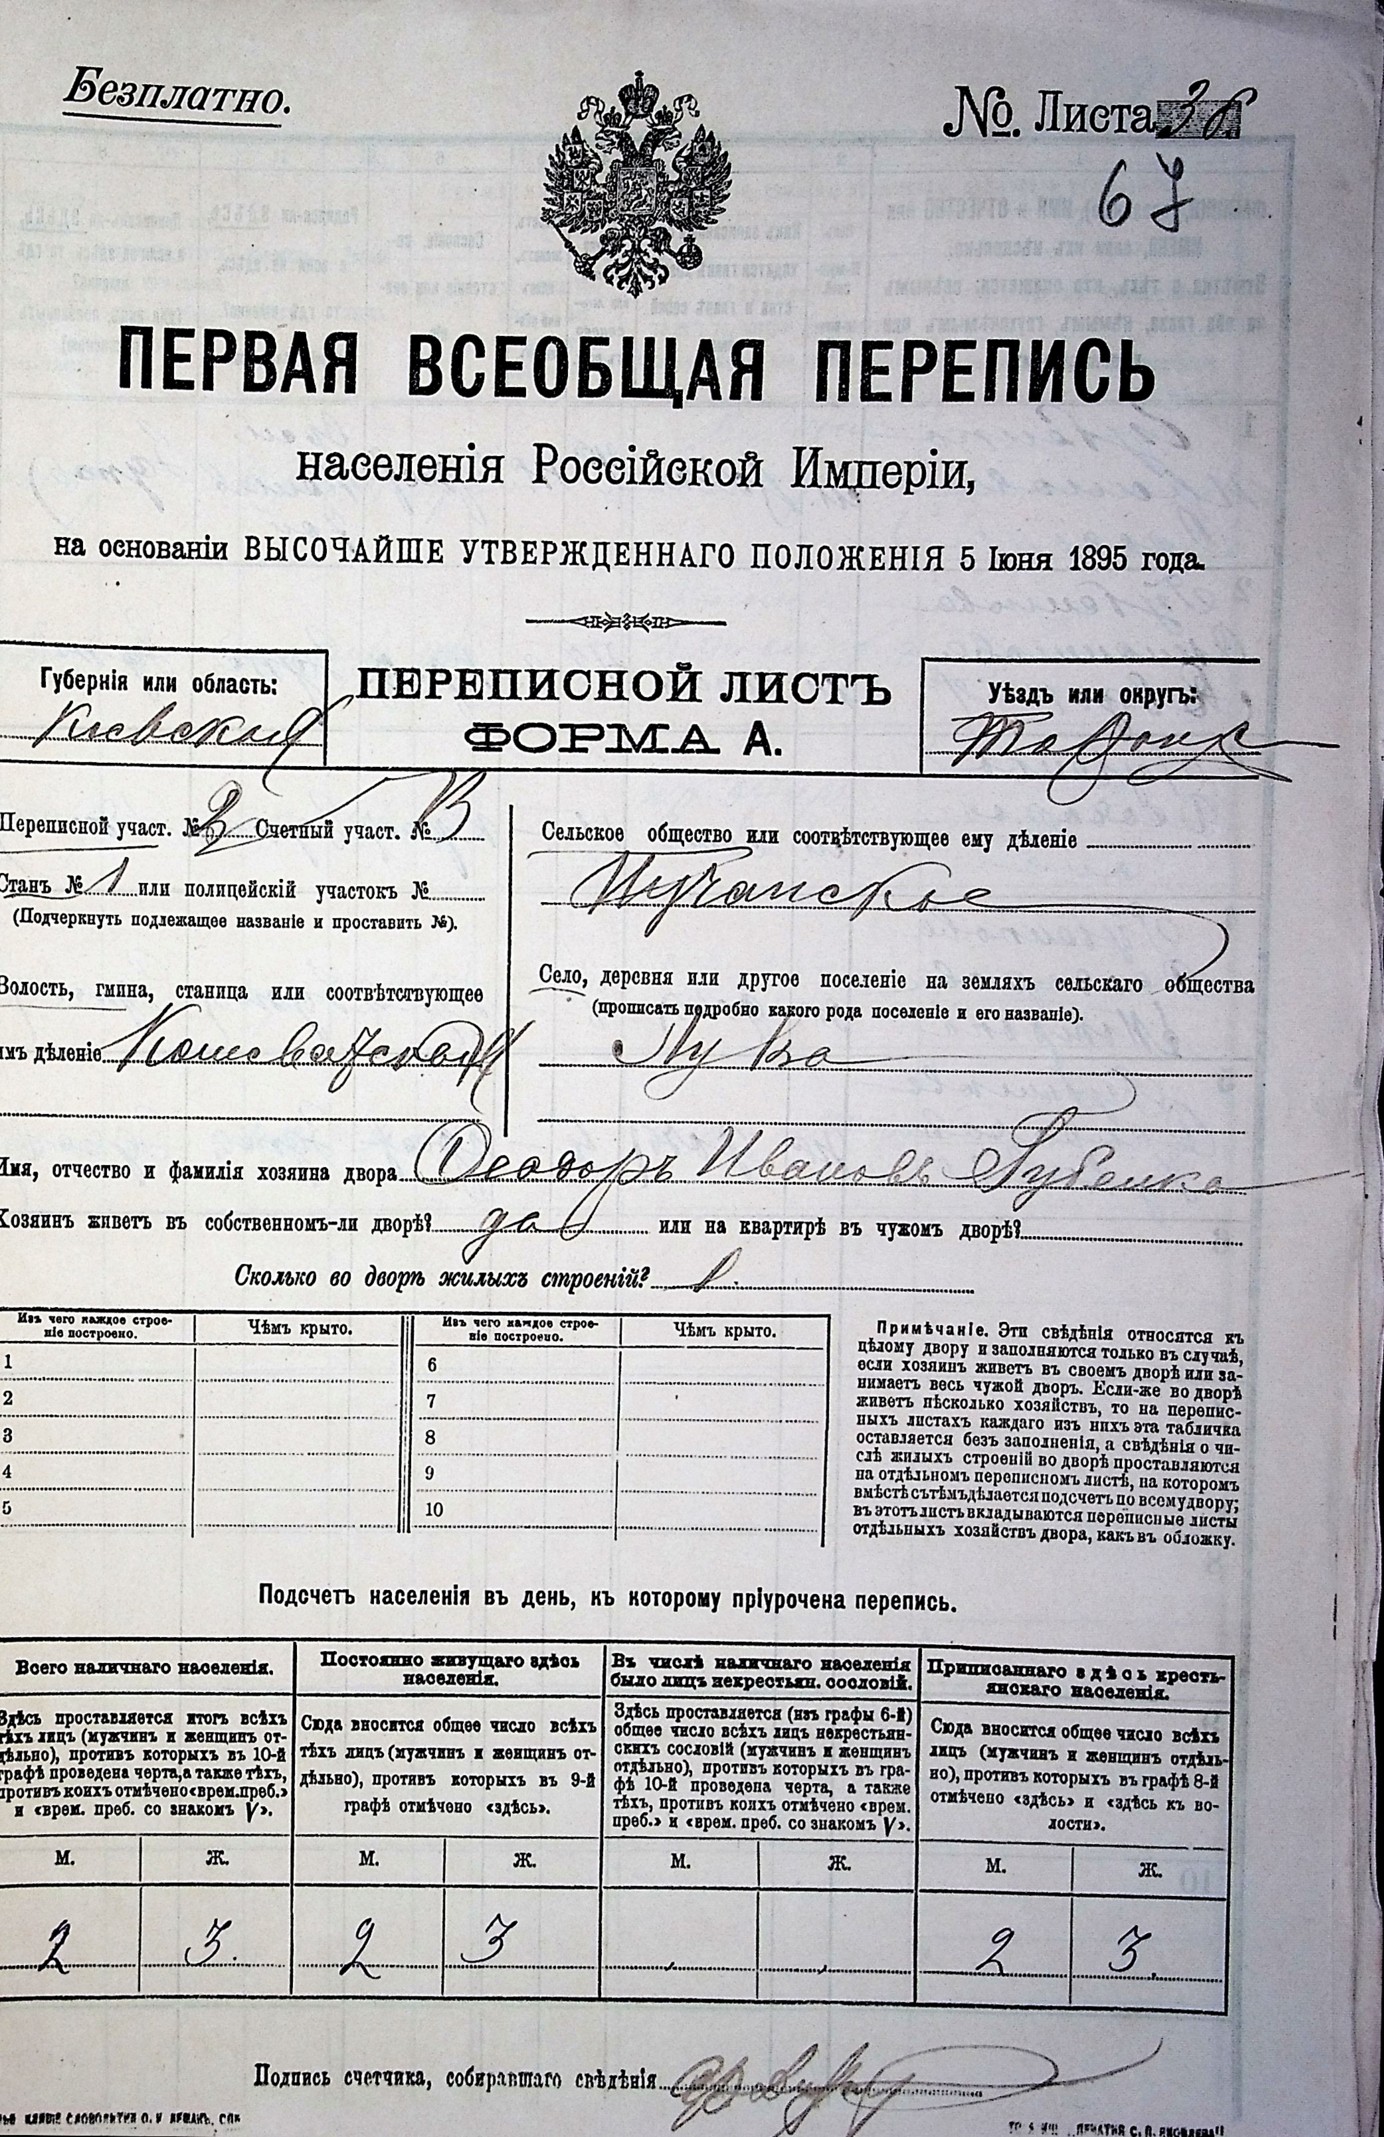 Безплатно.
№. Листа 38
67
ПЕРВАЯ ВСЕОБЩАЯ ПЕРЕПИСЬ
населенія Россійской Имперіи,
на основаніи ВЫСОЧАЙШЕ УТВЕРЖДЕННАГО ПОЛОЖЕНІЯ 5 Іюня 1895 года.
Губернія или область:
Кіевская
ПЕРЕПИСНОЙ ЛИСТЪ
ФОРМА А.
Уѣздъ или округъ:
Переписной участ. № 2 Счетный участ. № В
Станъ № 1 или полицейскій участокъ №
(Подчеркнуть подлежащее названіе и проставить №).
Волость, гмина, станица или соотвѣтствующее
имъ дѣленіе Кошеватская
Сельское общество или соотвѣтствующее ему дѣленіе
Лучанское
Село, деревня или другое поселеніе на земляхъ сельскаго общества
(прописать подробно какого рода поселеніе и его названіе).
Лука
Имя, отчество и фамилія хозяина двора Ѳеодоръ Ивановъ Губенко
Хозяинъ живетъ въ собственномъ-ли дворѣ? да или на квартирѣ въ чужомъ дворѣ?
Сколько во дворѣ жилыхъ строеній? 1.
Изъ чего каждое строеніе построено. Чѣмъ крыто. Изъ чего каждое строеніе построено. Чѣмъ крыто.
1 6
2 7
3 8
4 9
5 10
Примѣчаніе. Эти свѣдѣнія относятся къ
цѣлому двору и заполняются только въ случаѣ,
если хозяинъ живетъ въ своемъ дворѣ или за-
нимаетъ весь чужой дворъ. Если-же во дворѣ
живетъ нѣсколько хозяйствъ, то на перепис-
ныхъ листахъ каждаго изъ нихъ эта табличка
оставляется безъ заполненія, а свѣдѣнія о чи-
слѣ жилыхъ строеній во дворѣ проставляются
на отдѣльномъ переписномъ листѣ, на которомъ
вмѣстѣ съ тѣмъ дѣлается подсчетъ по всему двору;
въ этотъ листъ вкладываются переписные листы
отдѣльныхъ хозяйствъ двора, какъ въ обложку.
Подсчетъ населенія въ день, къ которому пріурочена перепись.
Всего наличнаго населенія.
Здѣсь проставляется итогъ всѣхъ
тѣхъ лицъ (мужчинъ и женщинъ от-
дѣльно), противъ которыхъ въ 10-й
графѣ проведена черта, а также тѣхъ,
противъ коихъ отмѣчено «врем. преб.»
и «врем. преб. со знакомъ V».
М. Ж.
2 3.
Постоянно живущаго здѣсь
населенія.
Сюда вносится общее число всѣхъ
тѣхъ лицъ (мужчинъ и женщинъ от-
дѣльно), противъ которыхъ въ 9-й
графѣ отмѣчено «здѣсь».
М. Ж.
2 3
Въ числѣ наличнаго населенія
было лицъ некрестьян. сословій.
Здѣсь проставляется (изъ графы 6-й)
общее число всѣхъ лицъ некрестьян-
скихъ сословій (мужчинъ и женщинъ
отдѣльно), противъ которыхъ въ гра-
фѣ 10-й проведена черта, а также
тѣхъ, противъ коихъ отмѣчено «врем.
преб.» и «врем. преб. со знакомъ V».
М. Ж.
Приписаннаго здѣсь кресть-
янскаго населенія.
Сюда вносится общее число всѣхъ
лицъ (мужчинъ и женщинъ отдѣль-
но), противъ которыхъ въ графѣ 8-й
отмѣчено «здѣсь» и «здѣсь къ во-
лости».
М. Ж.
2 3.
Подпись счетчика, собиравшаго свѣдѣнія